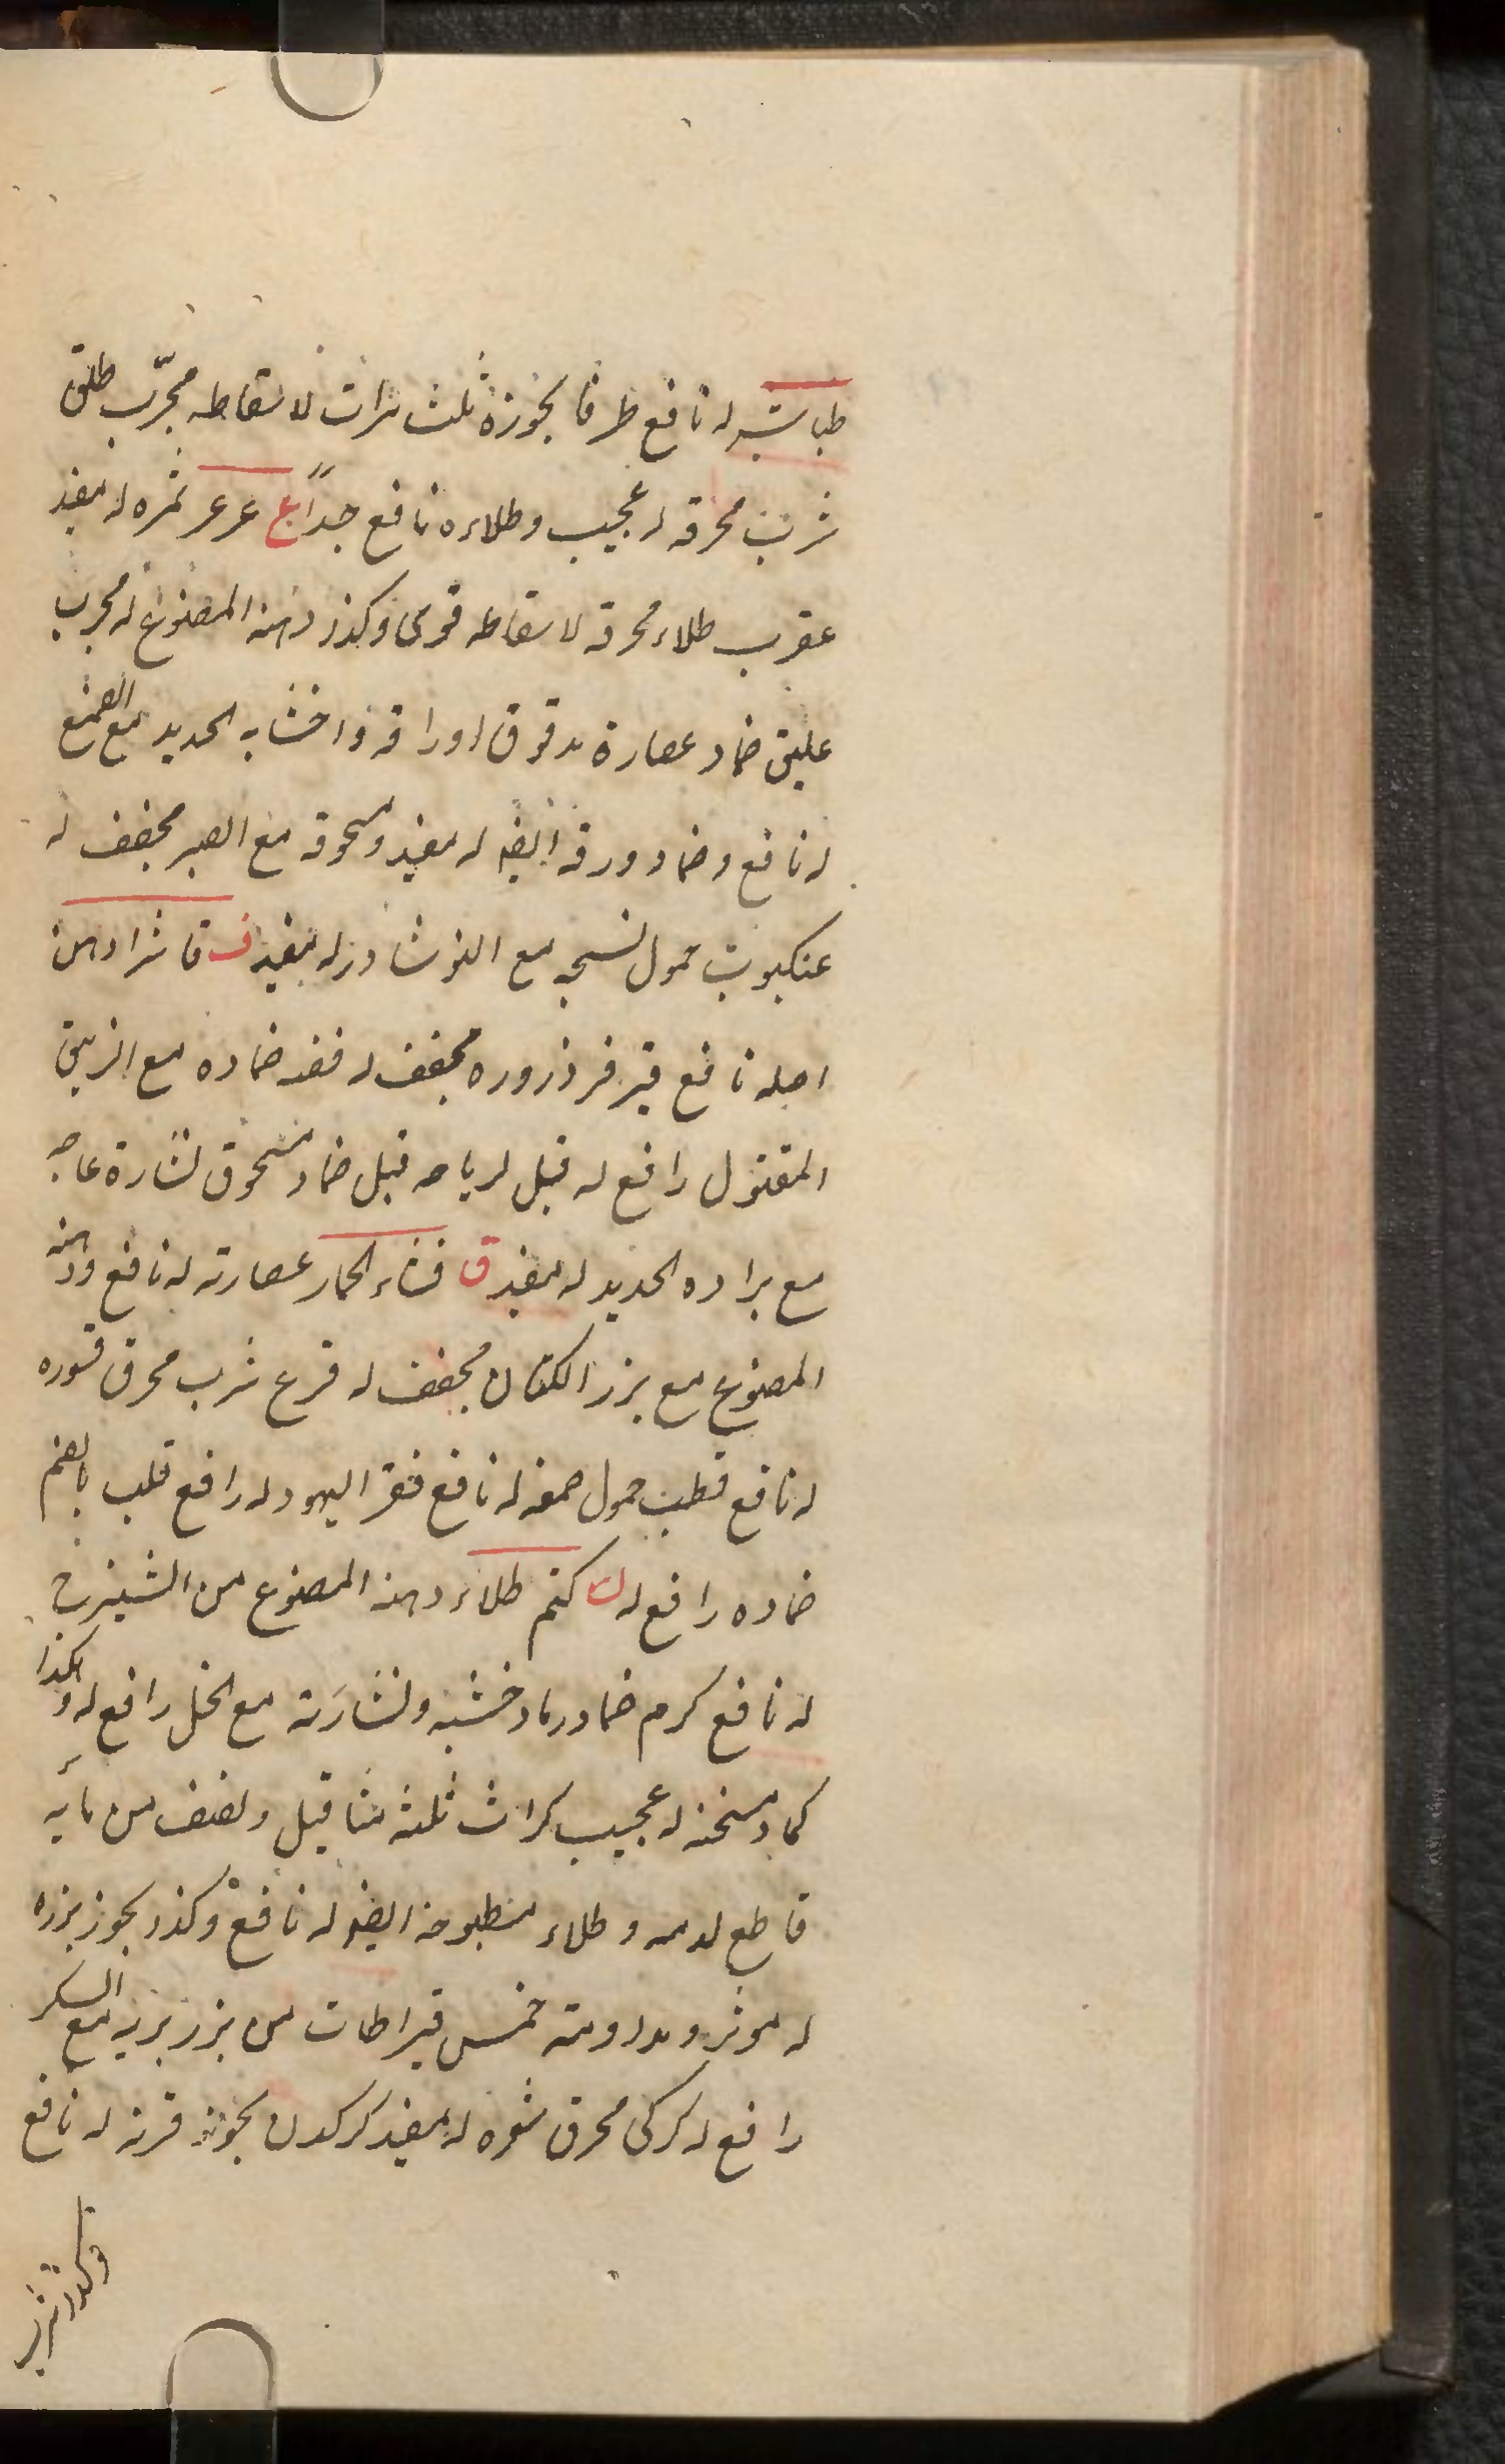 طباشير له نافع طرفا بخوره ثلث مرات لاسقاطه مجرّب طلق
شرب محرقه له عجيب وطلاءه نافع جداً ع عرعر ثمره له مفيد
عقرب طلاء محرقه لاسقاطه قوى وكذا دهنه المصنوع له مجرب
عليق ضماد عصارة مدقوق اوراقه واخشابه الحديد مع الصمغ
له نافع وضماد ورقه ايضا له مفيد ومسحوقه مع الصبر مجفف له
عنكبوت حمول نسجه مع النوشادر له مفيد ف فاشرا دهن
اصله نافع فرفر ذروره مجفف له فضه ضماده مع الزيبق
المقتول رافع له فيل ضماد مسحوق نشارة عاجه
مع براده الحديد له مفيد ق قثاء الحمار عصارته له نافع ودهنه
المصنوع مع بزر الكتان مجفف له قرع شرب محرق قشوره
له نافع حمول صمغه له نافع قفر اليهود له رافع قلب بالضم
ضماده رافع له ك كتم طلاء دهنه المصنوع من الشيرج
له نافع كرم ضماد رماد خشبه ونشارته مع الخل رافع له وكذا
كماد مسخنه له عجيب كراث ثلثه مثاقيل ونصف من مائه
قاطع لدمه وطلاء مطبوخه ايضا له نافع وكذا بخور بزره
له موثر ومداومة خمس قيراطات من بزر بريه مع السكر
رافع له كركى محرق شعره له مفيد كركدن بخور قرنه له نافع
وكذا شرب